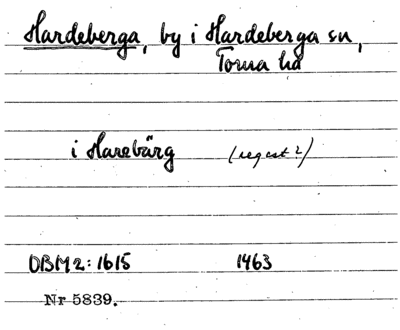 Hardeberga, by i Hardeberga sn,
Torna hd
i Harebärg (regest?)
DBM2:1615 1463
Nr 5839.